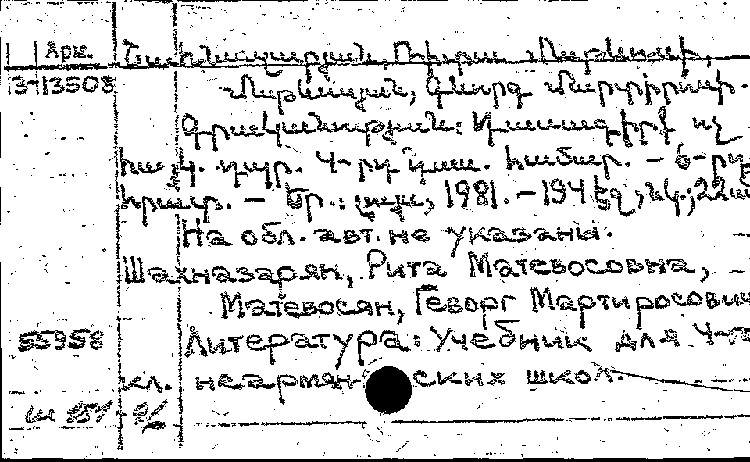 Арм.
Շահնազարյան, Ռիտա Մաթևոսի,
3-13508
Մաթևոսյան, Գևորգ Մարտիրոսի.
Գրականություն: Դասագիրք ոչ
հայկ. դպր. 4-րդ դաս. համար. - 6-րդ
հրատ. - Եր.: Լույս, 1981. - 194 էջ, նկ.; 22սմ
На обл. авт. не указаны.
Шахназарян, Рита Матевосовна,
Матевосян, Геворг Мартиросович
55958 Литература: Учебник для 4-го
кл. неармянских школ.